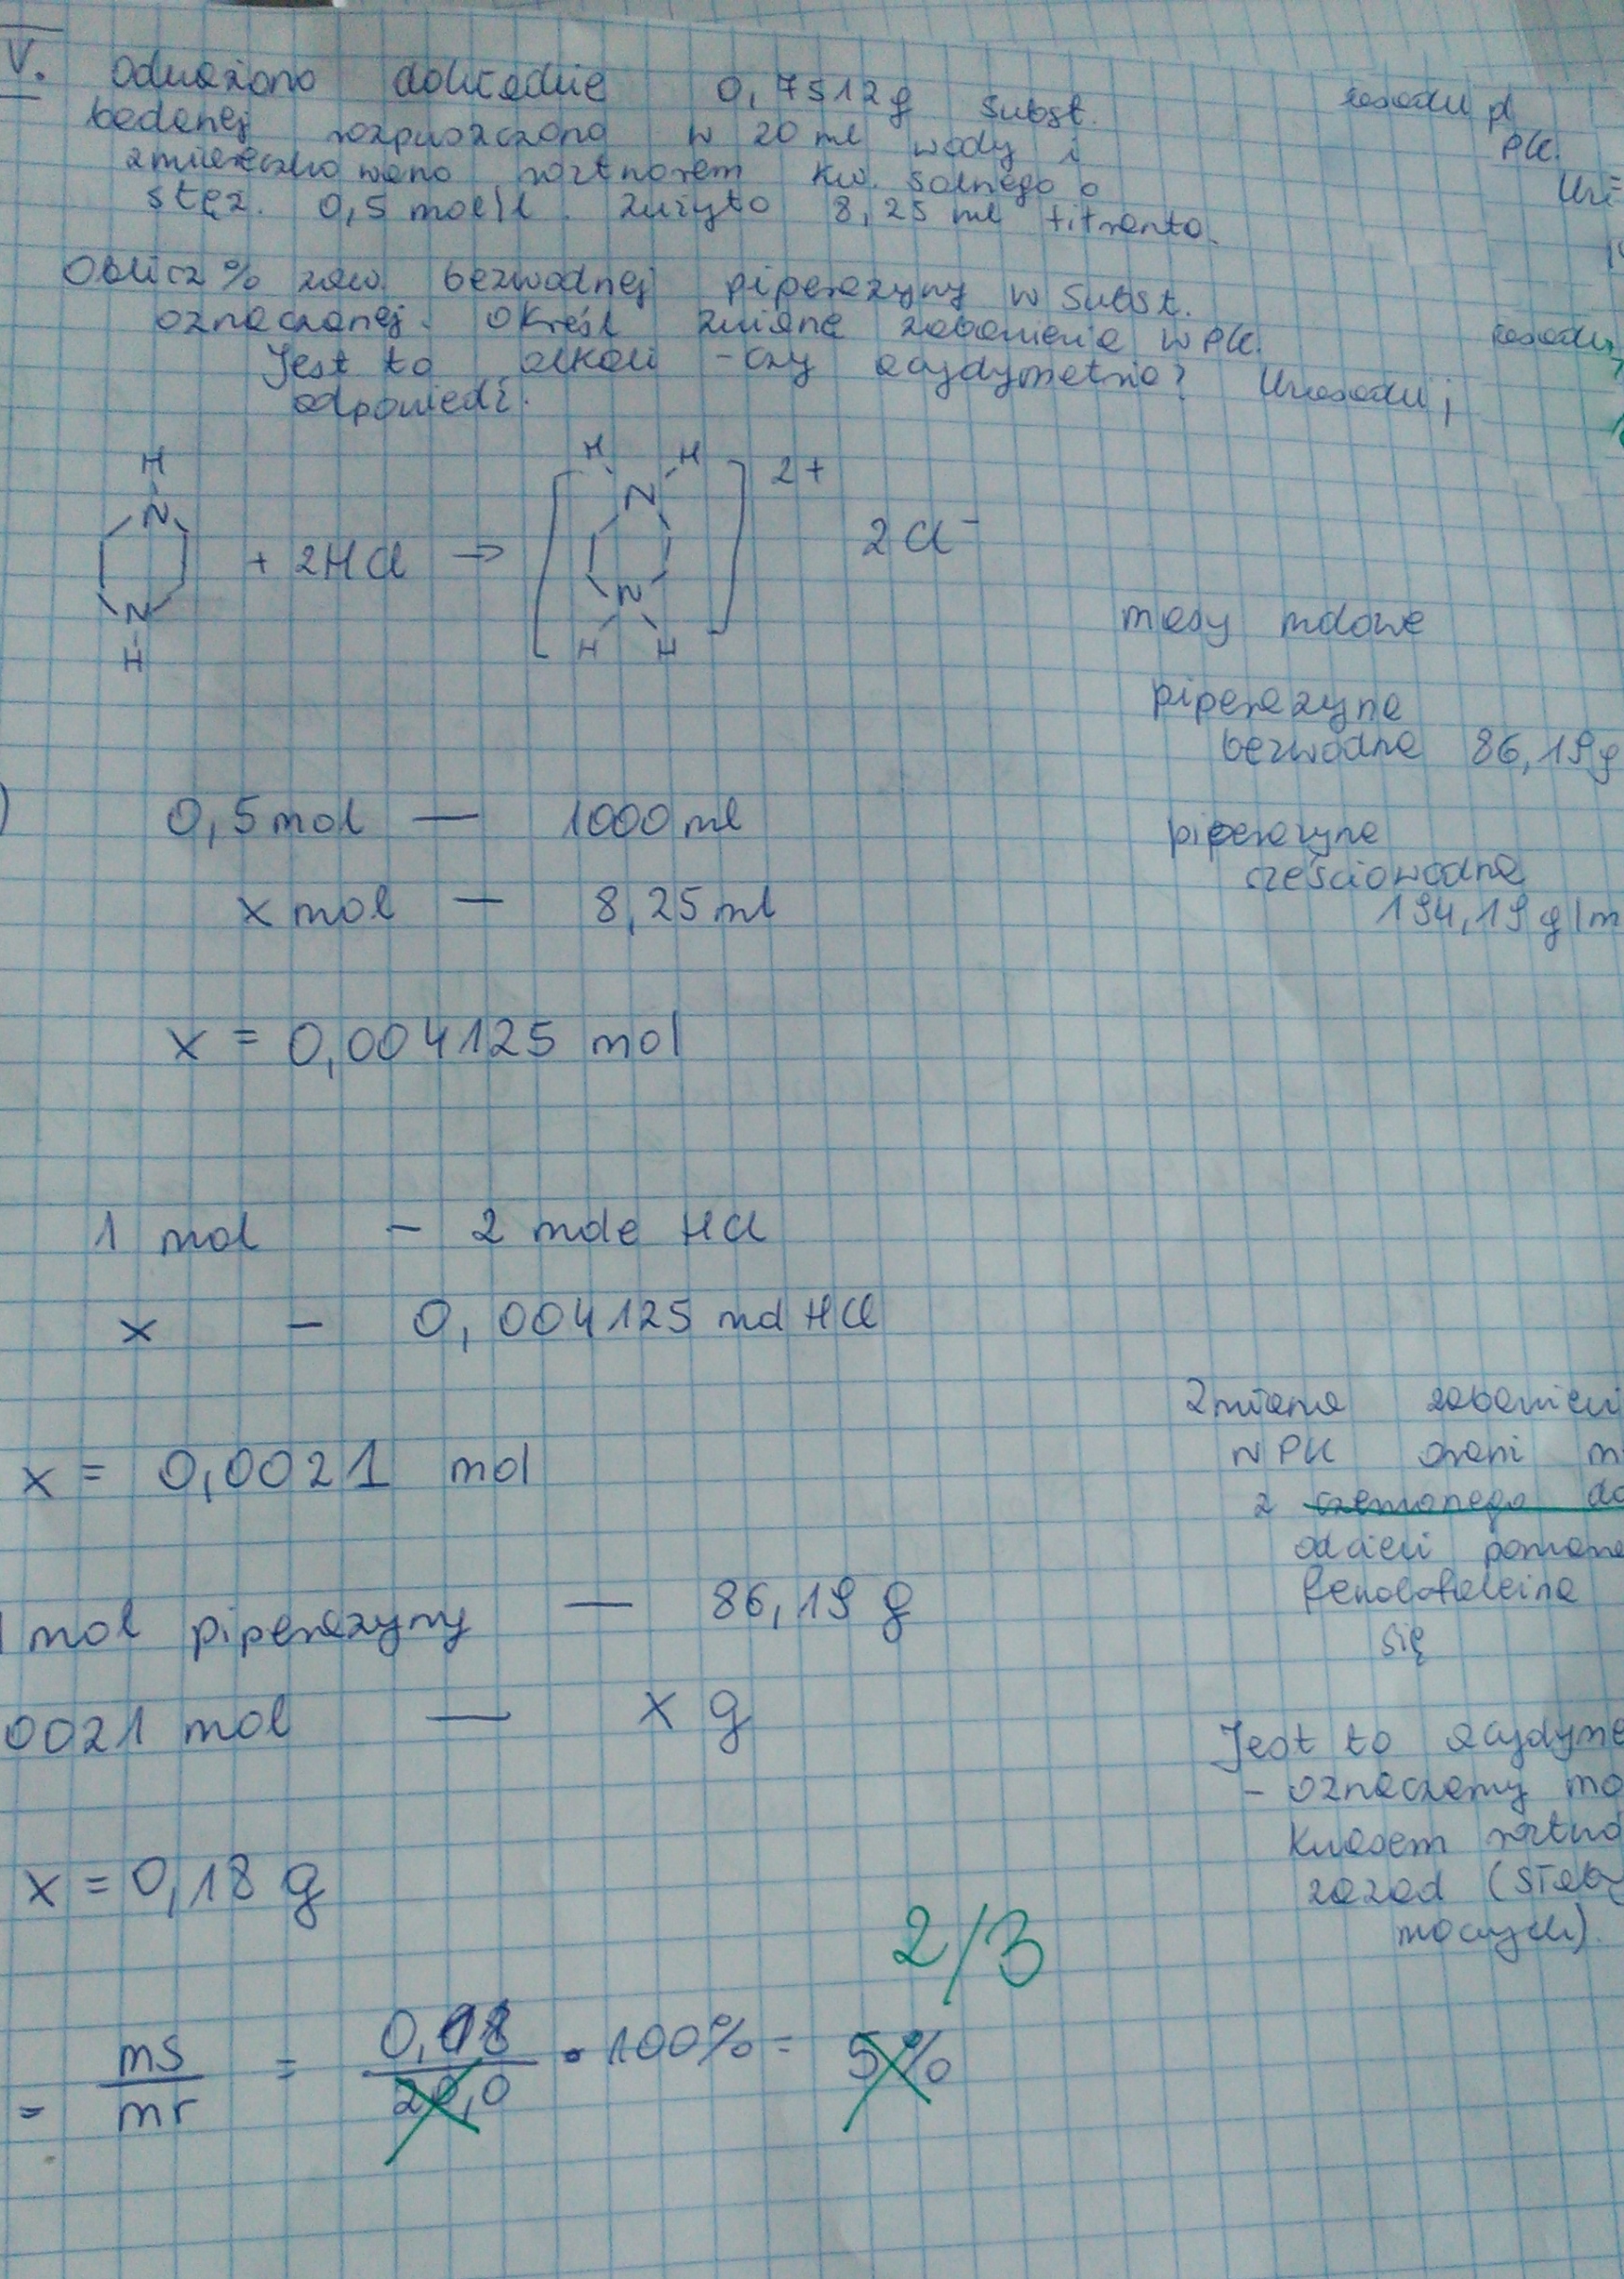 V. Odważono dokładnie 0,7512g subst.
badanej rozpuszczono w 20 ml wody i
zmiareczkowano roztworem kw. solnego o
stęż. 0,5 mol/l. Zużyto 8,25 ml titranta.
Oblicz % zaw. bezwodnej piperazyny w subst.
oznaczanej. Określ zmianę zabarwienia w PK.
Jest to alkali - czy acydymetria? Uzasadnij
odpowiedź.
PK.
H
N
N
H
+ 2HCl →
H H
N
N
H H
2+
2Cl⁻
masy molowe
piperazyna
bezwodna 86,19g
piperazyna
sześciowodna
194,19 g/m
0,5 mol — 1000 ml
x mol — 8,25 ml
x = 0,004125 mol
1 mol - 2 mole HCl
x - 0,004125 mol HCl
x = 0,0021 mol
1 mol piperazyny — 86,19 g
0021 mol — x g
x = 0,18 g
= ms/mr = 0,18/20,0 · 100% = 5%
2/3
Zmiana zabarwieni
w PK oranż m
z czerwonego do
odcień pomara
fenoloftaleina
się
Jest to acydyme
- oznaczamy mo
kwasem roztwo
zasad (słaby
mocnych).